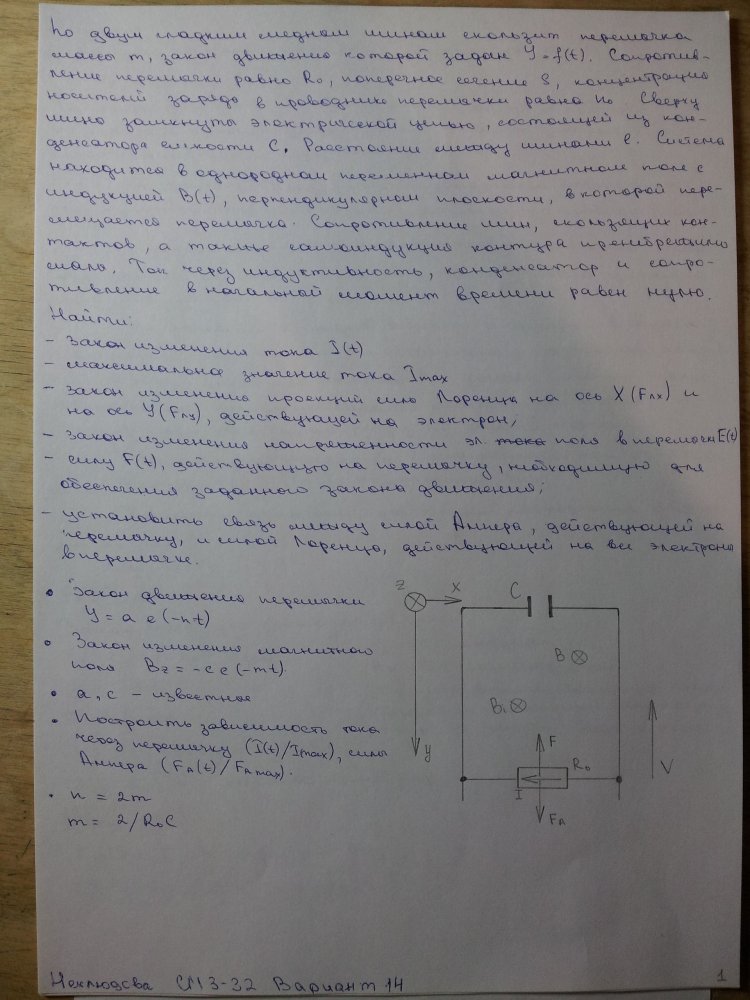 По двум гладким медным шинам скользит перемычка
массы m, закон движения которой задан Y=f(t). Сопротив-
ление перемычки равно R₀, поперечное сечение S, концентрация
носителей заряда в проводнике перемычки равна n₀. Сверху
шины замкнуты электрической цепью, состоящей из кон-
денсатора ёмкости C. Расстояние между шинами l. Система
находится в однородном переменном магнитном поле с
индукцией B(t), перпендикулярном плоскости, в которой пере-
мещается перемычка. Сопротивление шин, скользящих кон-
тактов, а также самоиндукция контура пренебрежимо
малы. Ток через индуктивность, конденсатор и сопро-
тивление в начальный момент времени равен нулю.
Найти:
- Закон изменения тока I(t)
- максимальное значение тока Imax
- закон изменения проекций силы Лоренца на ось X (Fлx) и
на ось Y (Fлy), действующей на электрон;
- закон изменения напряженности эл. поля в перемычке E(t)
- силу F(t), действующую на перемычку, необходимую для
обеспечения заданного закона движения;
- установить связь между силой Ампера, действующей на
перемычку, и силой Лоренца, действующей на все электроны
в перемычке.
• Закон движения перемычки
Y = a e (-nt)
• Закон изменения магнитного
поля Bz = -c e (-mt)
• a, c - известные
• Построить зависимость тока
через перемычку (I(t)/Imax), силы
Ампера (FA(t)/FAmax).
• n = 2m
m = 2/R₀C
Z
X
C
B
Bi
y
F
R₀
I
V
FA
Неклюдова СМ3-32 Вариант 14
1